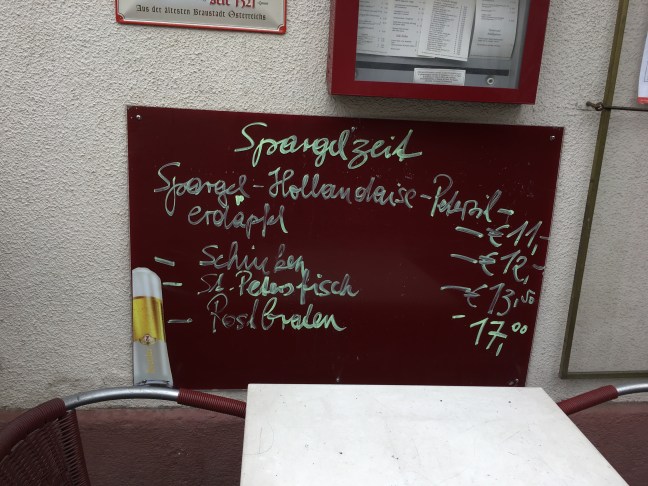 seit 1321
Aus der ältesten Braustadt Österreichs
Spargelzeit
Spargel-Hollandaise-Petersil-
erdäpfel -€ 11,-
- Schinken -€ 12,-
- St. Petersfisch -€ 13,50
- Rostbraten - 17,00